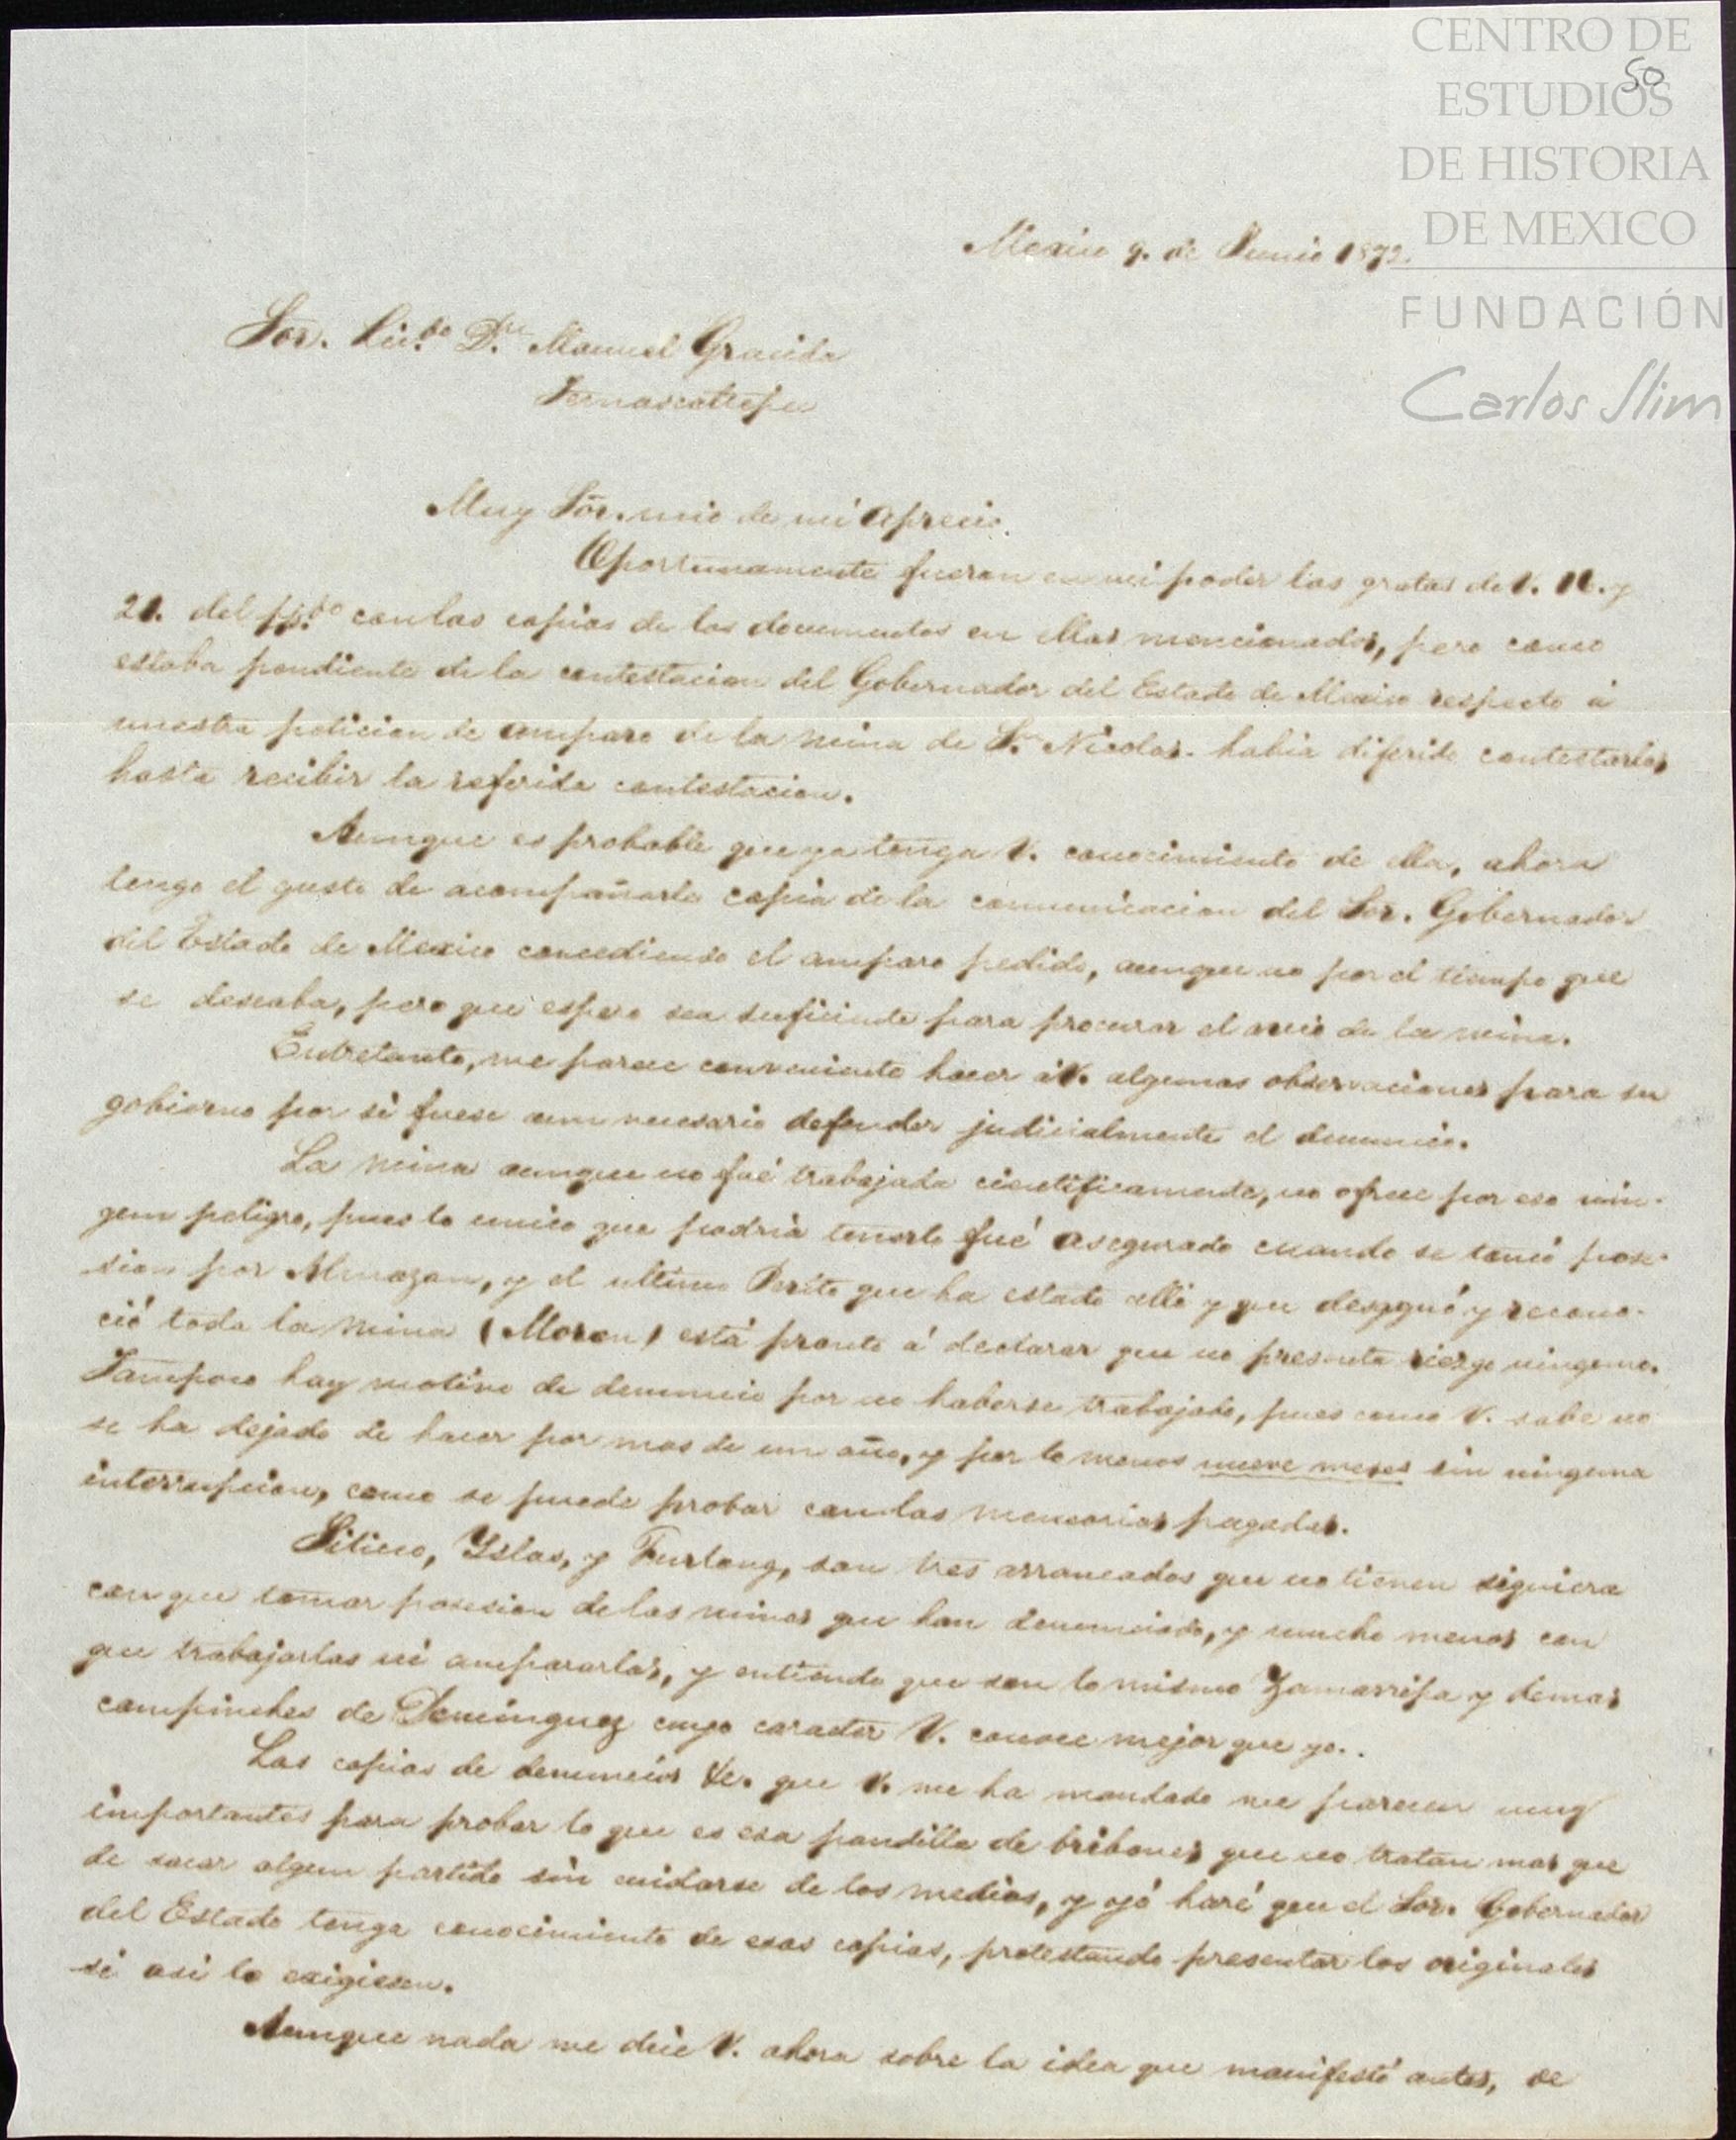 CENTRO DE
ESTUDIOS
DE HISTORIA
DE MEXICO
FUNDACIÓN
Carlos Slim
50
Mexico 9. de Junio 1872.
Sõr. Lic.do D.n Manuel Gracida
Temascaltepec
Muy Sõr. mio de mi aprecio.
Oportunamente fueron en mi poder las gratas de V. 11. y
21. del pp.do con las copias de los documentos en ellas mencionados, pero como
estaba pendiente de la contestacion del Gobernador del Estado de Mexico respecto á
nuestra peticion de amparo de la mina de S.n Nicolas. habia diferido contestarlas
hasta recibir la referida contestacion.
Aunque es probable que ya tenga V. conocimiento de ella, ahora
tengo el gusto de acompañarle copia de la comunicacion del Sor. Gobernador
del Estado de Mexico concediendo el amparo pedido, aunque no por el tiempo que
se deseaba, pero que espero sea suficiente para procurar el avio de la mina.
Entretanto, me parece conveniente hacer á V. algunas observaciones para su
gobierno por si fuese aun necesario defender judicialmente el denuncio.
La mina aunque no fué trabajada cientificamente, no ofrece por eso nin-
gun peligro, pues lo unico que podria tenerlo fué asegurado cuando se tomó pose-
sion por Almazan, y el ultimo Perito que ha estado allí y que desagué y recono-
ció toda la mina (Moron) está pronto á declarar que no presenta riezgo ninguno.
Tampoco hay motivo de denuncio por no haberse trabajado, pues como V. sabe no
se ha dejado de hacer por mas de un año, y por lo menos nueve meses sin ninguna
interrupcion, como se puede probar con las memorias pagadas.
Sitico, Yslas, y Furlong, son tres arrancados que no tienen siquiera
con que tomar posesion de las minas que han denunciado, y mucho menos con
que trabajarlas ni ampararlas, y entiendo que son lo mismo Zamarripa y demas
compinches de Dominguez cuyo caracter V. conoce mejor que yo..
Las copias de denuncios &c. que V. me ha mandado me parecen muy
importantes para probar lo que es esa pandilla de bribones que no tratan mas que
de sacar algun partido sin cuidarse de los medios, y yó haré que el Sor. Gobernador
del Estado tenga conocimiento de esas copias, protestando presentar los originales
si asi lo exigiesen.
Aunque nada me dice V. ahora sobre la idea que manifestó antes, de